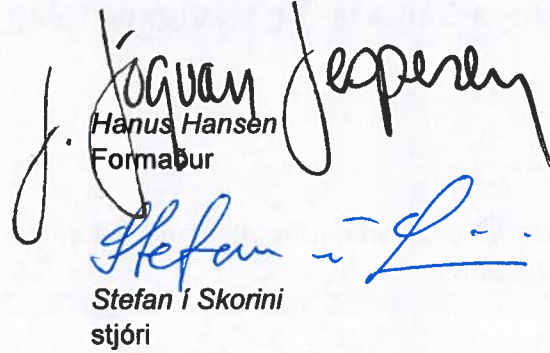 J. Jógvan Jespersen
Hanus Hansen
Formaður
Stefan í
Stefan í Skorini
stjóri